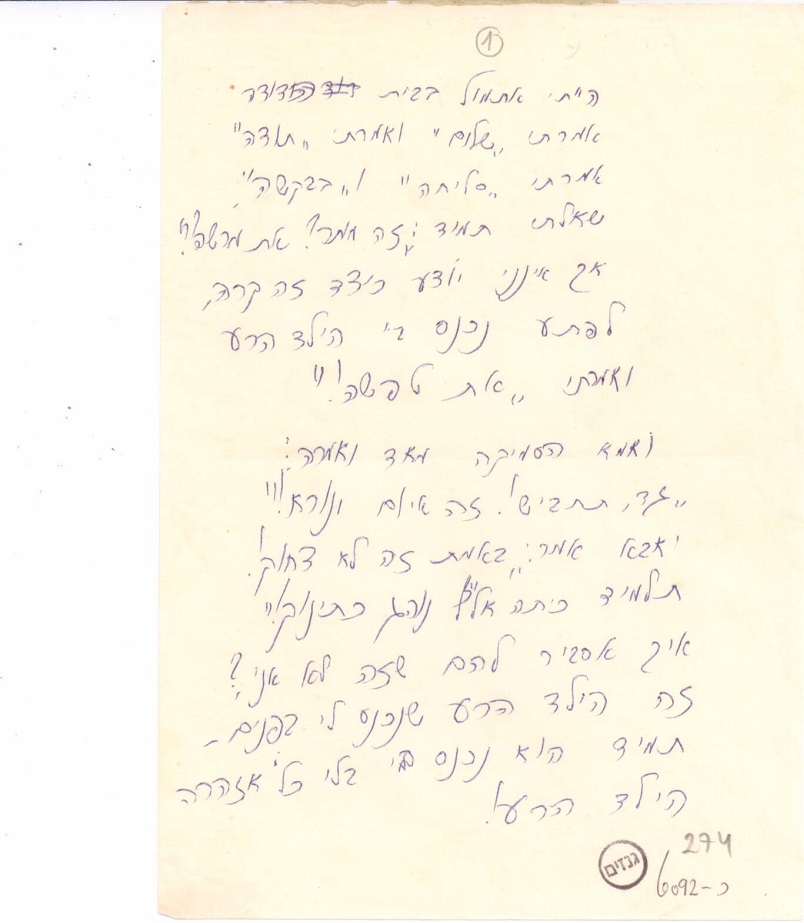 1
הייתי אתמול בבית הדודה
אמרתי „שלום" ואמרתי „תודה"
אמרתי „סליחה" ו„בבקשה".
שאלתי תמיד: „זה מותר? את מרשה?"
אך אינני יודע כיצד זה קרה,
לפתע נכנס בי הילד הרע
ואמרתי „את טפשה!"
ואמא הסמיקה מאד ואמרה:
„גד, תתבייש! זה איום ונורא!"
ואבא אמר: „באמת זה לא צחוק!
תלמיד כיתה אל"ף נוהג כתינוק!"
איך אסביר להם שזה לא אני?
זה הילד הרע שנכנס לי בפנים –
תמיד הוא נכנס בי בלי כל אזהרה
הילד הרע!
274
גנזים
כ-6092